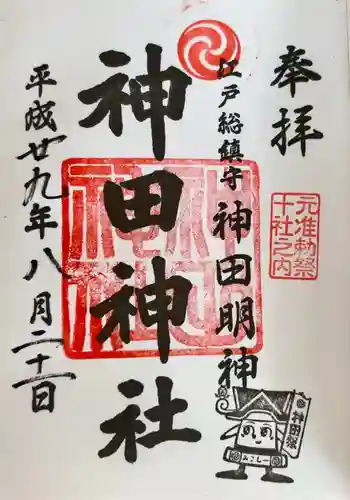 奉拝
元准勅祭
十社之内
江戸総鎮守 神田明神
神田神社
平成廿九年八月二十一日
神田祭
みこしー